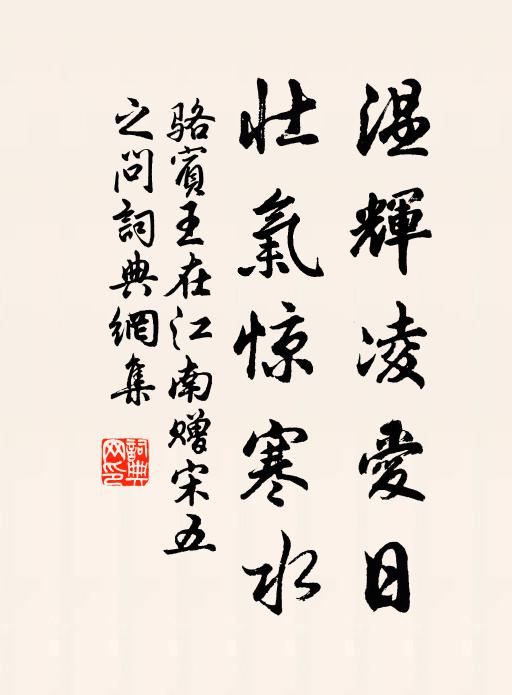 温輝凌愛日
壯氣惊寒水
骆賓王在江南赠宋五
之问詞典網集
詞典
网印